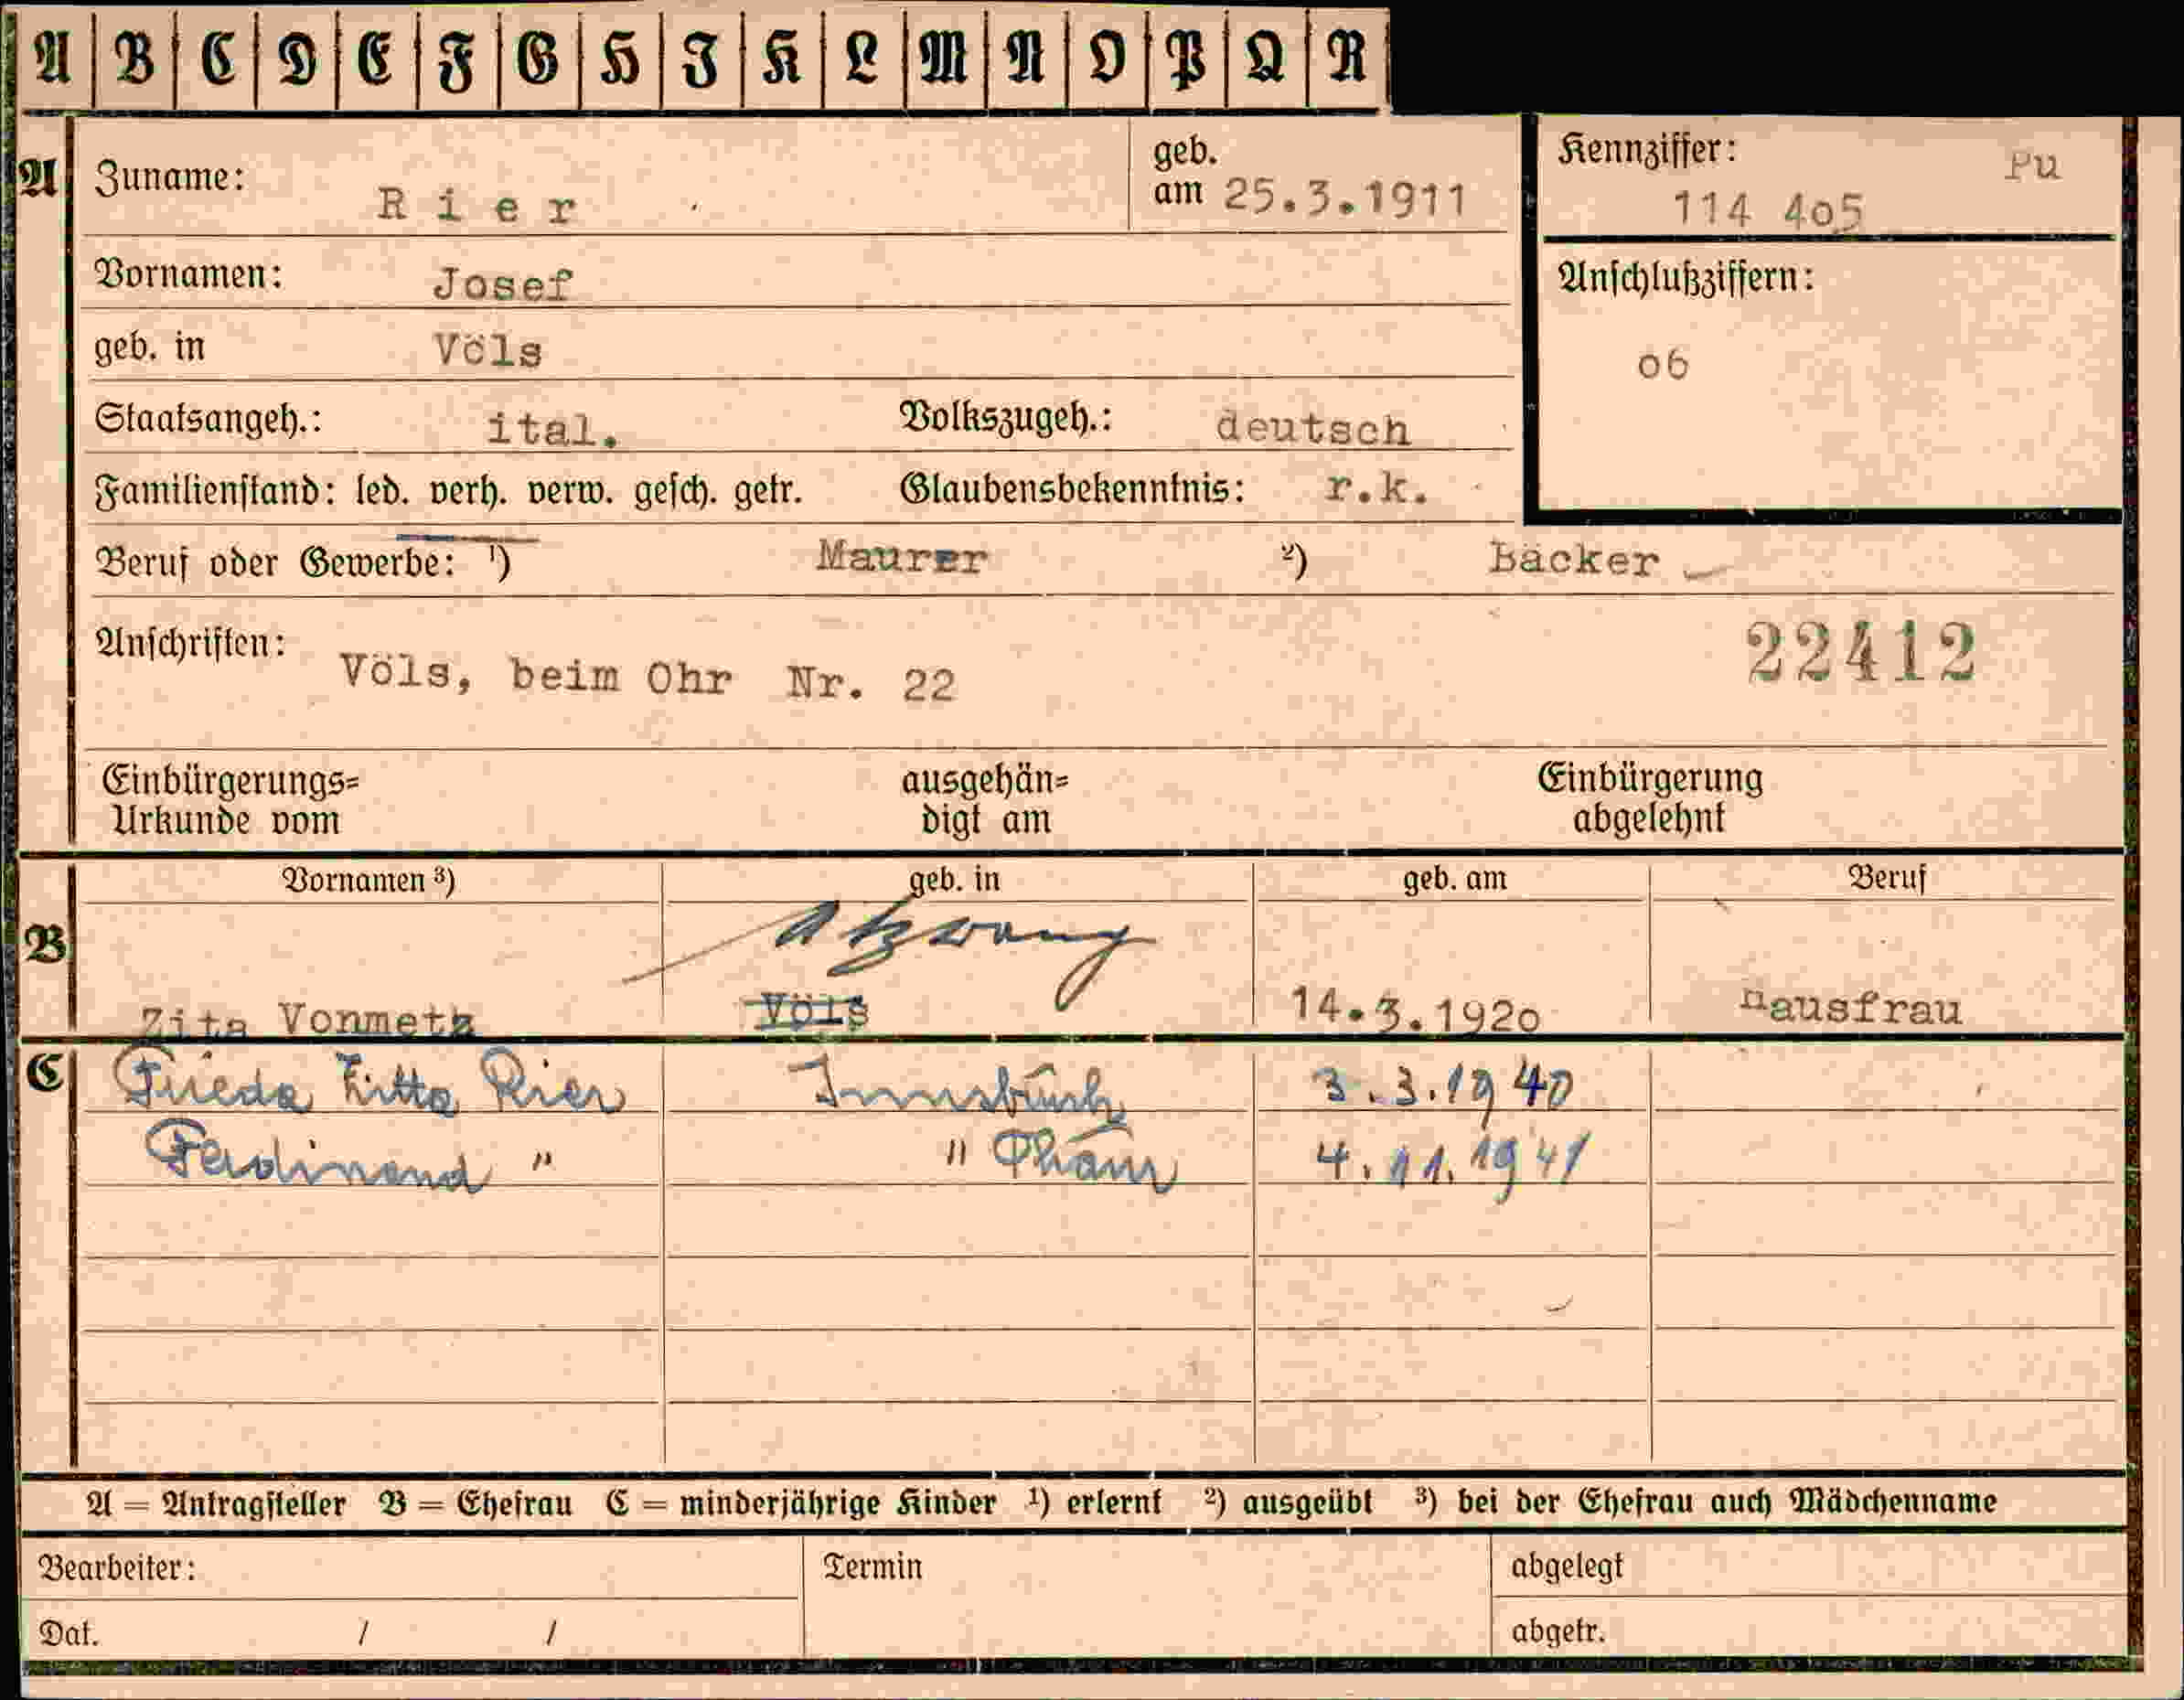 A B C D E F G H I K L M N O P Q R
A Zuname: Rier geb. am 25.3.1911
Kennziffer: Pu
114 4o5
Vornamen: Josef
Anschlußziffern:
o6
geb. in Völs
Staatsangeh.: ital. Volkszugeh.: deutsch
Familienstand: led. verh. verw. gesch. getr. Glaubensbekenntnis: r.k.
Beruf oder Gewerbe: ¹) Maurer ²) Bäcker
Anschriften: Völs, beim Ohr Nr. 22
22412
Einbürgerungs= ausgehän= Einbürgerung
Urkunde vom digt am abgelehnt
Vornamen ³) geb. in geb. am Beruf
B Atzwang
Zita Vonmetz Völs 14.3.192o Hausfrau
C Frieda Zitta Rier Innsbruck 3.3.1940
Ferdinand " " 4.11.1941
A = Antragsteller B = Ehefrau C = minderjährige Kinder ¹) erlernt ²) ausgeübt ³) bei der Ehefrau auch Mädchenname
Bearbeiter: Termin abgelegt
Dat. / / abgetr.